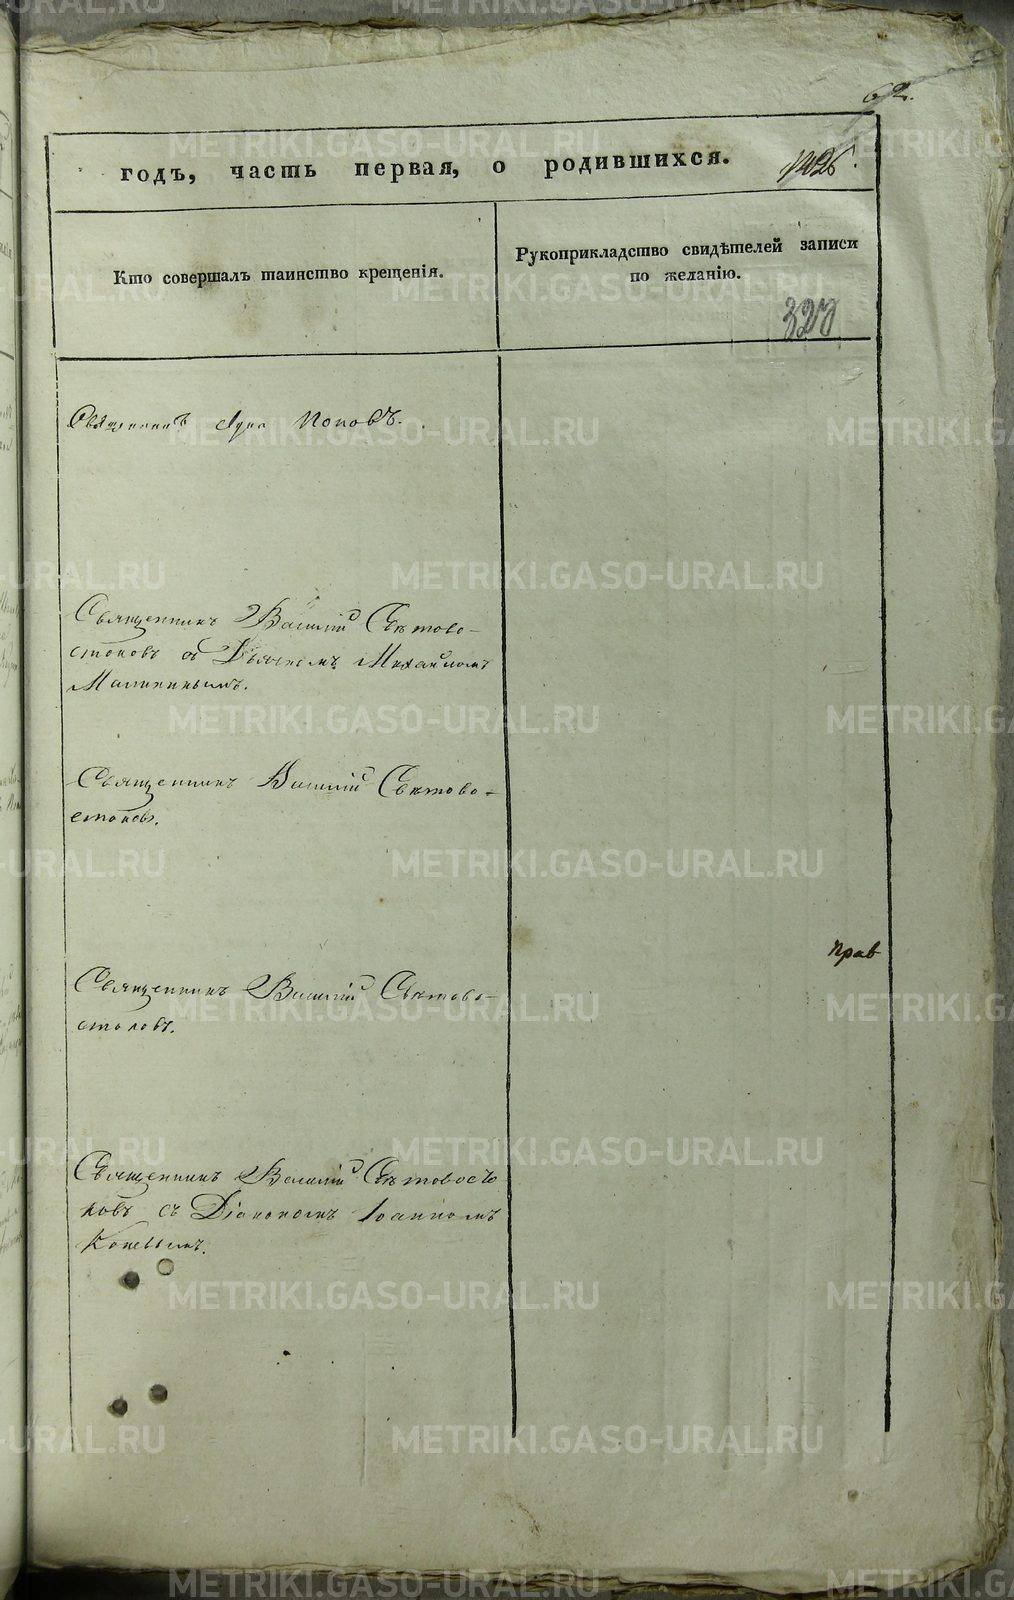 62.
годъ, часть первая, о родившихся.
Кто совершалъ таинство крещенія.
Рукоприкладство свидѣтелей записи
по желанію.
Священникъ Лука Поповъ.
Священникъ Василій Свѣтово-
стоковъ съ Дьячкомъ Михаиломъ
Священникъ Василій Свѣтово-
стоковъ.
прав
Священникъ Василій Свѣтово-
стоковъ.
Священникъ Василій Свѣтовосто
ковъ съ Діакономъ Іоанномъ
METRIKI.GASO-URAL.RU